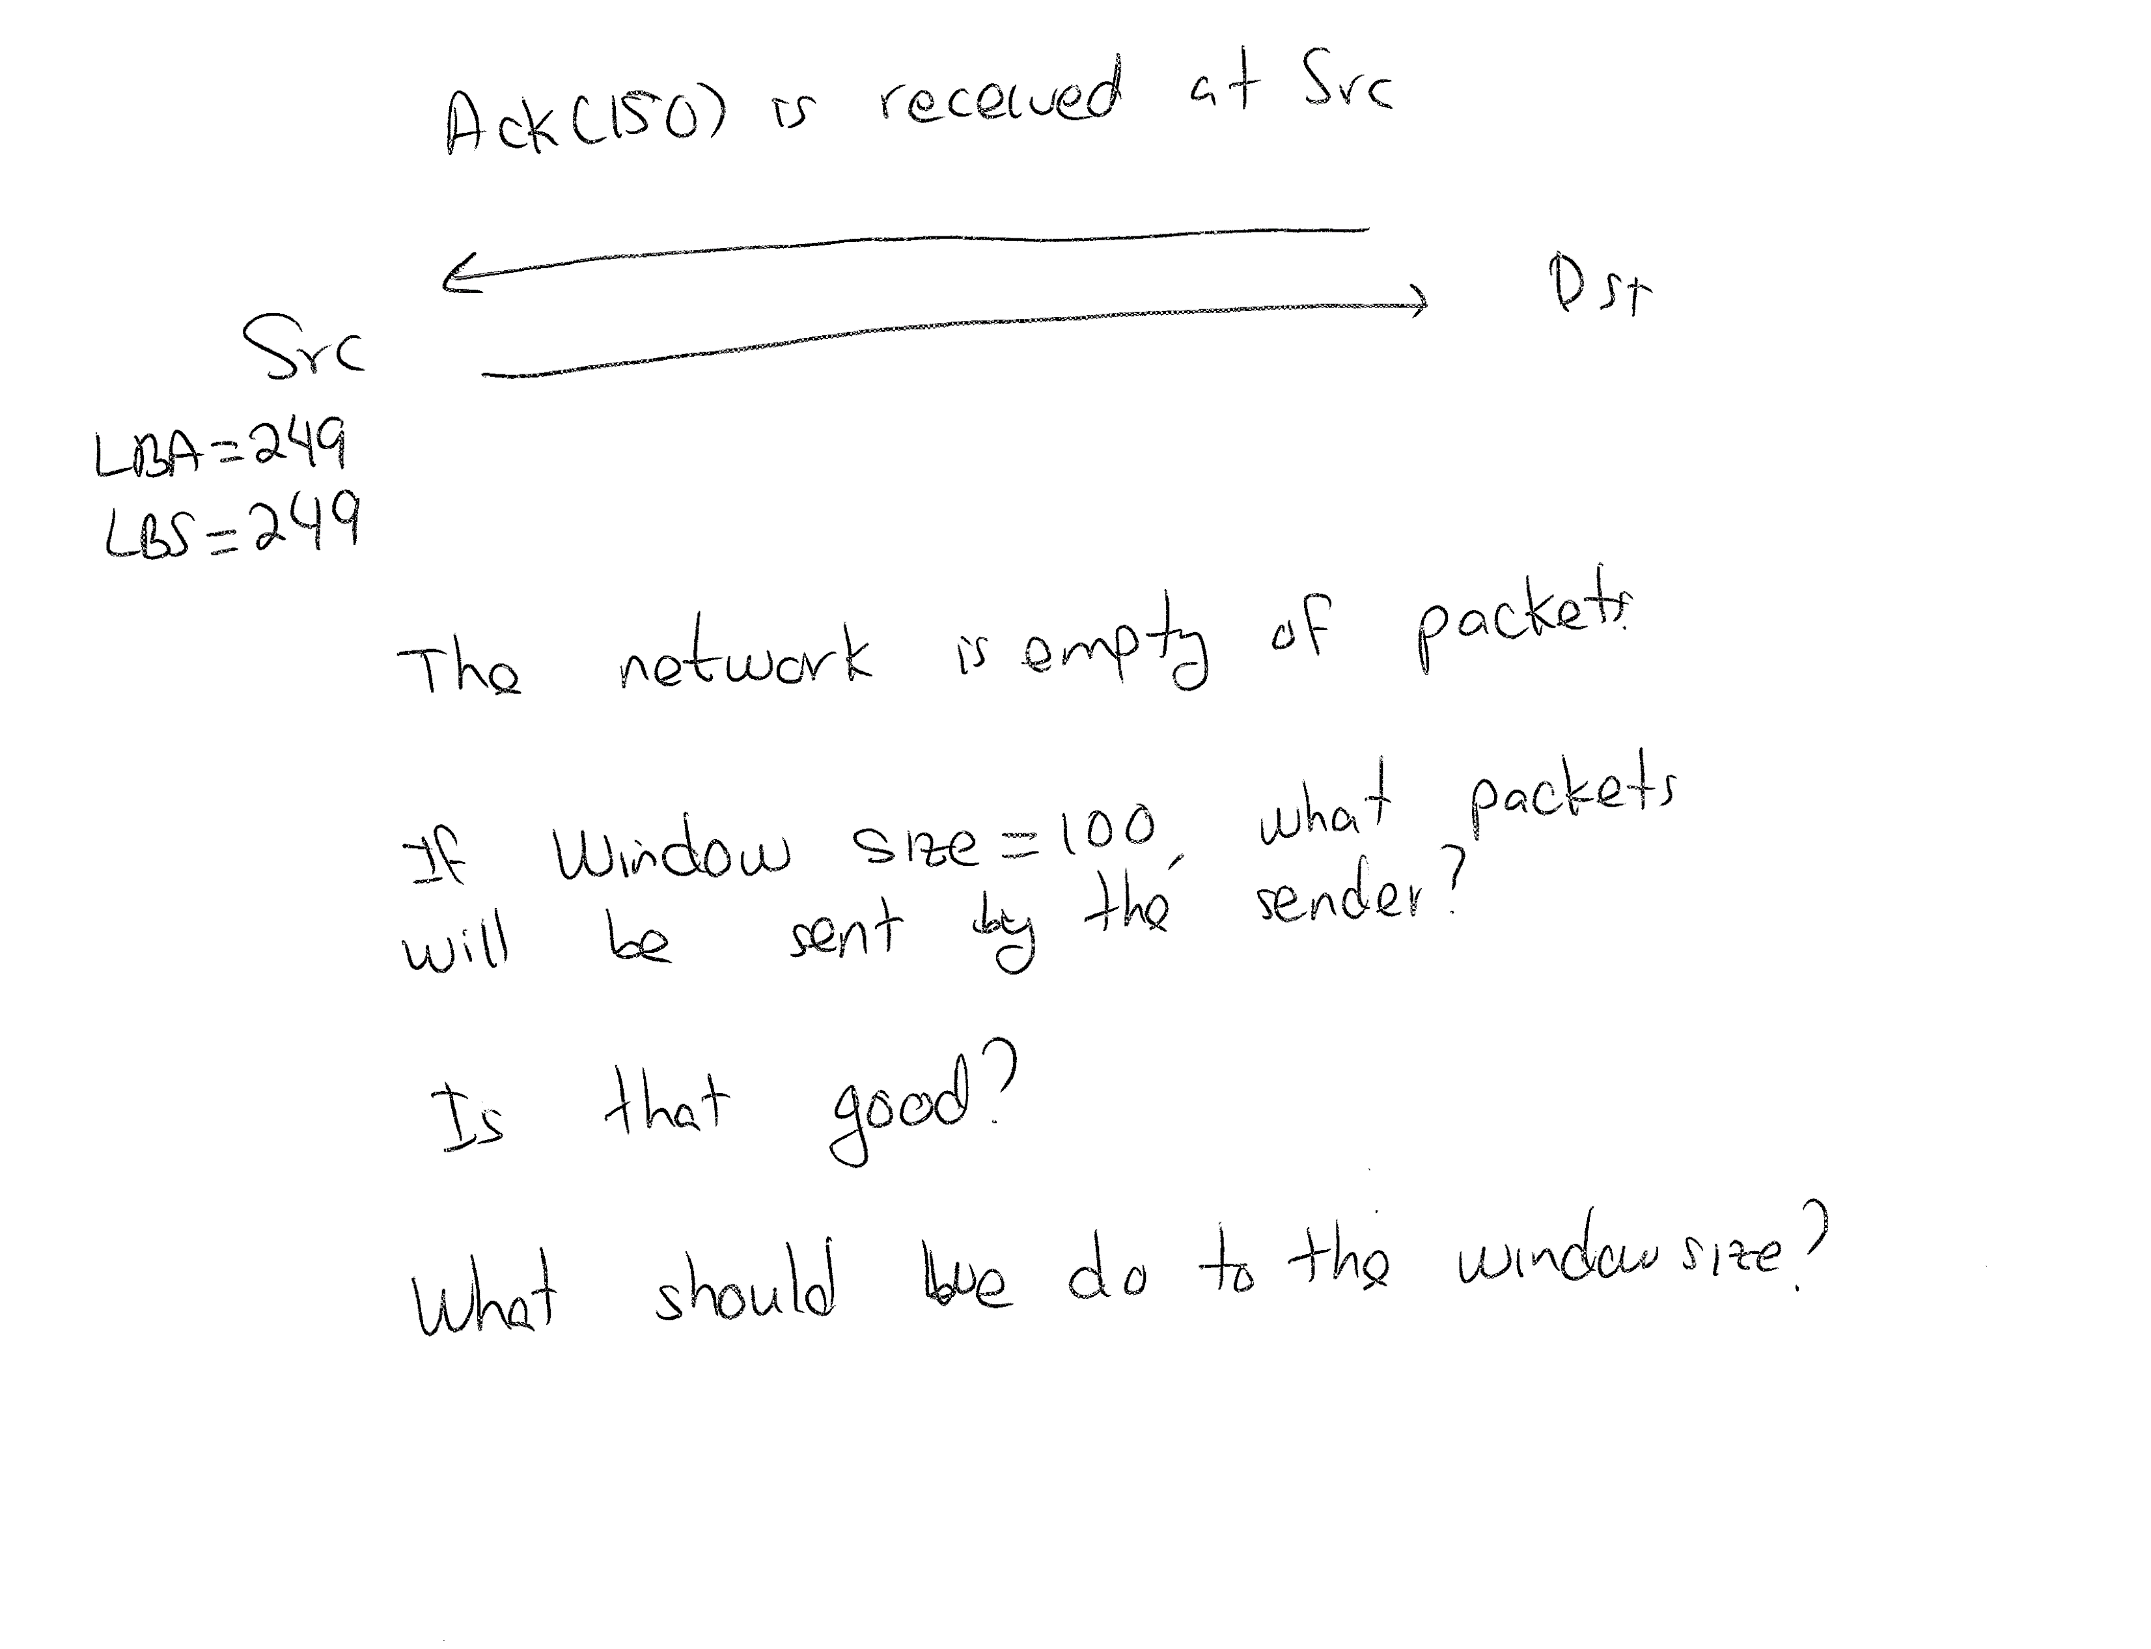 Ack(150) is received at Src
Dst
Src
LBA=249
LBS=249
The network is empty of packets
If Window size=100, what packets
will be sent by the sender?
Is that good?
What should we do to the window size?